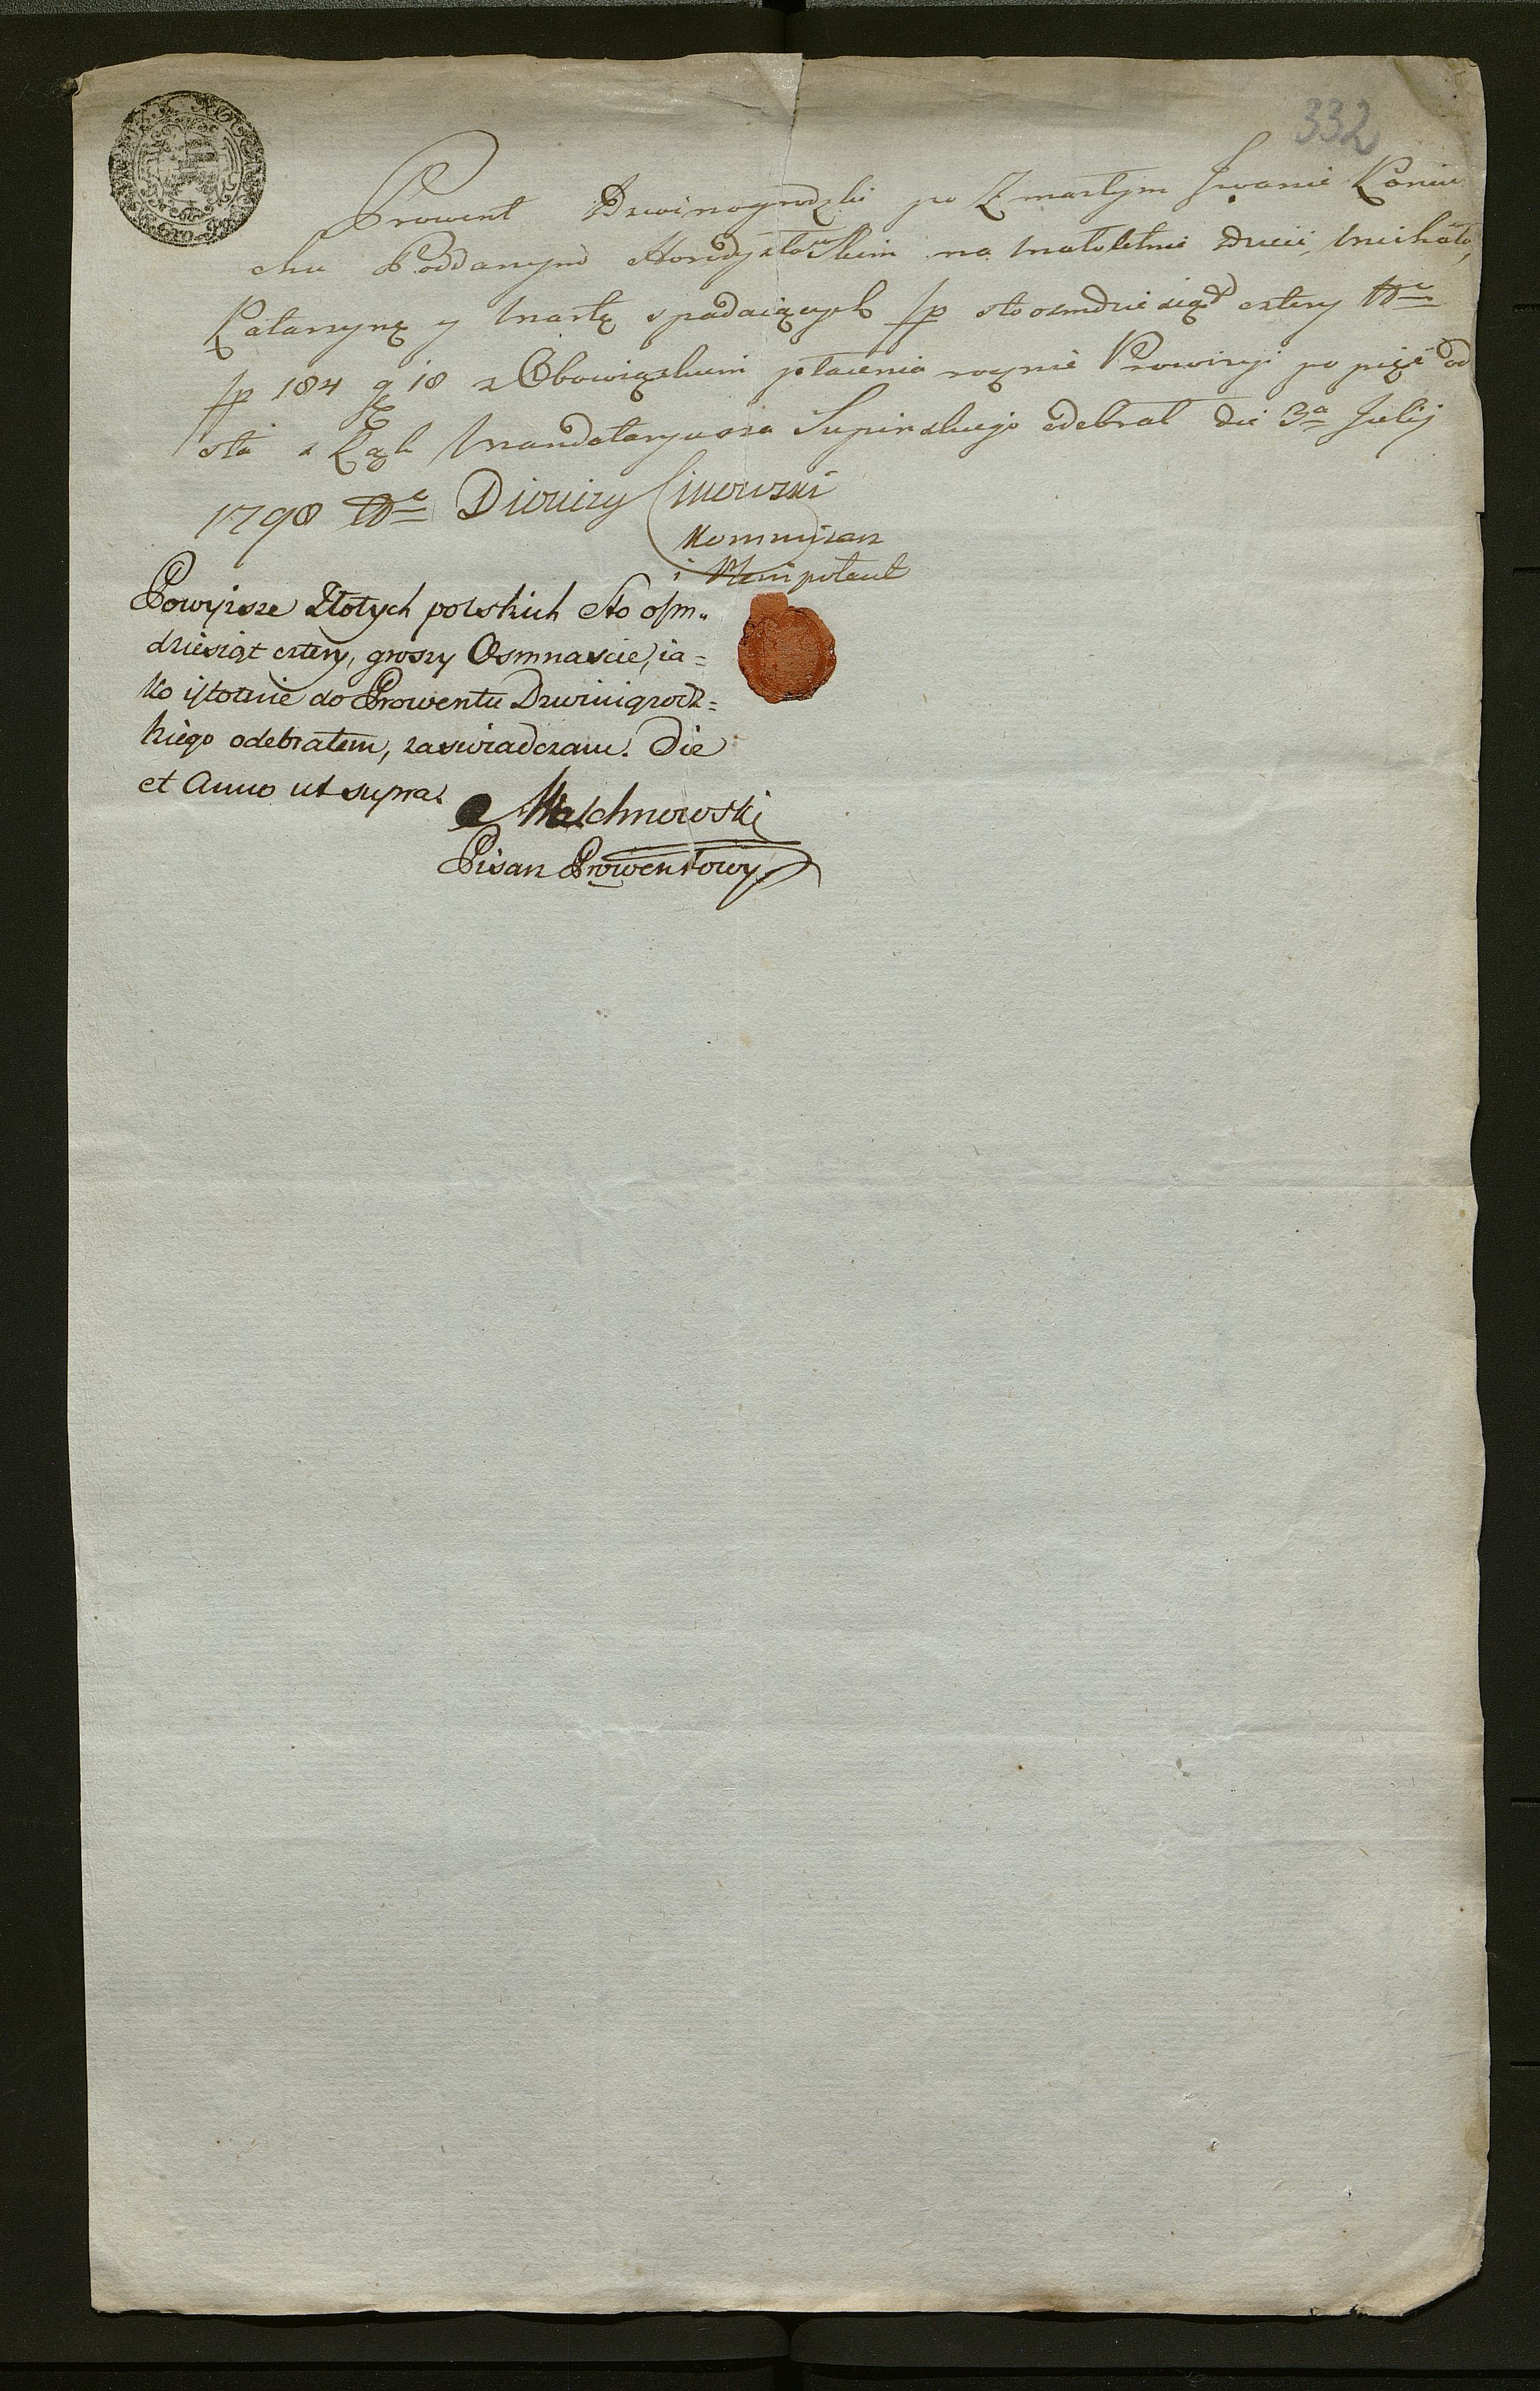 332
Prowent Dzwinogrodzki po Zmarłym Jwanie Koniu
chu Poddanym na Małoletnie Dzieci, Michała,
Katarzynę y Martę spadaiących fp sto osmdziesiąt cztery
fp 184 g 18 z Obowiązkiem płacenia rocznie Prowizyi po pięć od
sta z Rąk Mandataryusza Supinskiego odebrał die 3a Julij
1798 Dionizy
Kommisarz
i Plenipotent
Powyższe Złotych polskich Sto osm=
dziesiąt cztery, groszy Osmnascie, ia=
ko istotnie do Prowentu Dzwinigrodz=
kiego odebrałem, zaswiadczam. Die
et Anno ut supra.
Malchnowski
Pisarz Prowentowy